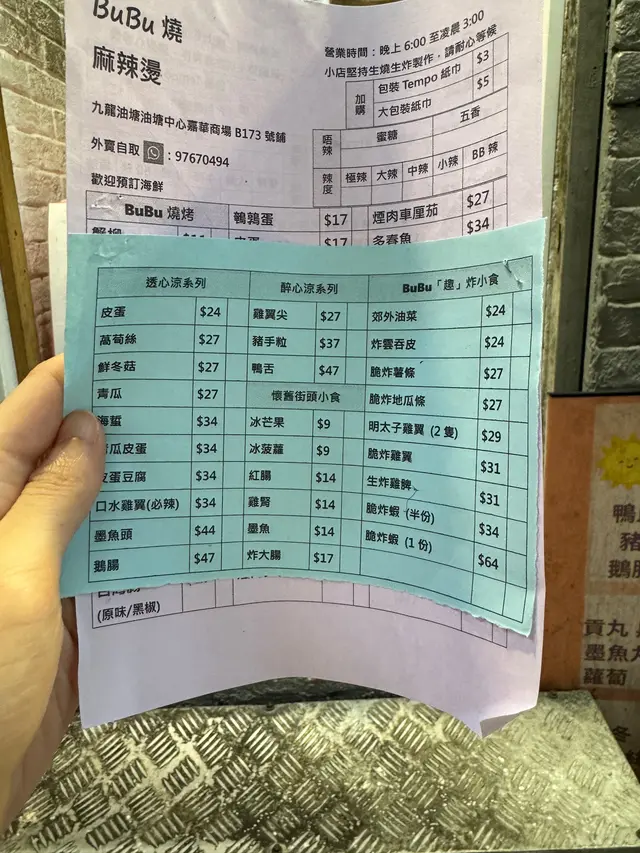 BuBu 燒
麻辣燙
九龍油塘油塘中心嘉華商場 B173 號鋪
外賣自取 : 97670494
歡迎預訂海鮮
營業時間：晚上 6:00 至凌晨 3:00
小店堅持生燒生炸製作，請耐心等候
加購 包裝 Tempo 紙巾 $3
大包裝紙巾 $5
唔辣 蜜糖 五香
辣度 極辣 大辣 中辣 小辣 BB 辣
BuBu 燒烤 鵪鶉蛋 $17 煙肉車厘茄 $27
$17 多春魚 $34
透心涼系列 醉心涼系列 BuBu「趣」炸小食
皮蛋 $24 雞翼尖 $27 郊外油菜 $24
萵筍絲 $27 豬手粒 $37 炸雲吞皮 $24
鮮冬菇 $27 鴨舌 $47 脆炸薯條 $27
青瓜 $27 懷舊街頭小食 脆炸地瓜條 $27
海蜇 $34 冰芒果 $9 明太子雞翼 (2 隻) $29
瓜皮蛋 $34 冰菠蘿 $9 脆炸雞翼 $31
皮蛋豆腐 $34 紅腸 $14 生炸雞髀 $31
口水雞翼(必辣) $34 雞腎 $14 脆炸蝦 (半份) $34
墨魚頭 $44 墨魚 $14 脆炸蝦 (1 份) $64
鵝腸 $47 炸大腸 $17
(原味/黑椒)
鴨
豬
鵝腸
貢丸
墨魚丸
蘿蔔
冬